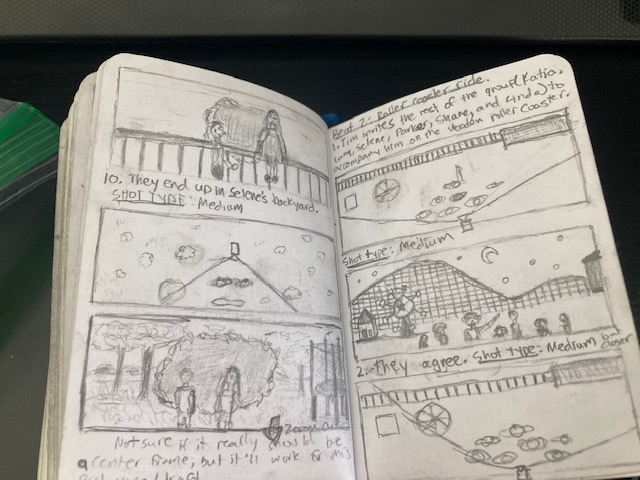 10. They end up in Selene's backyard.
SHOT TYPE: Medium
Zoom Out
Not sure if it really should be
a center frame, but it'll work for this
Beat 2: Roller coaster ride.
1. Tim invites the rest of the group (Katia,
Selene, Parker, Shane, and Linda) to
accompany him on the wooden roller coaster.
Shot type: Medium
2. They agree. Shot type: Medium but
closer